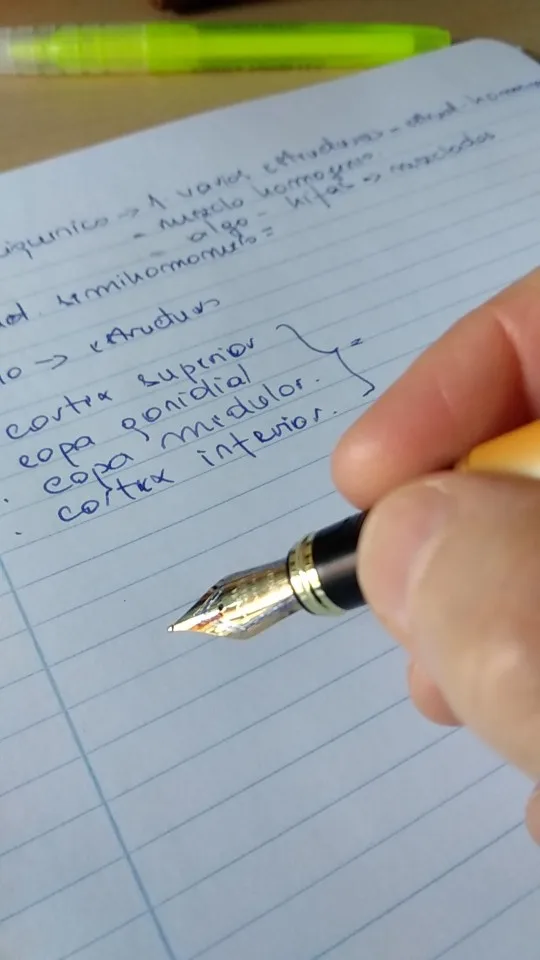 iquimico → 1 varias estructuras = 
- mezcla homogenea
- algo - hifas => mezclados
semihomomero =
io → estructura
cortex superior
copa gonidial
. copa medular.
. cortex inferior. } =